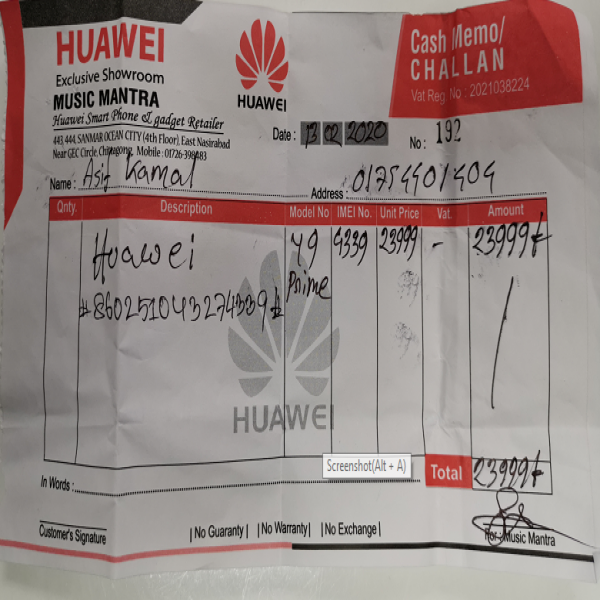 HUAWEI
Exclusive Showroom
MUSIC MANTRA
Huawei Smart Phone & gadget Retailer
443, 444, SANMAR OCEAN CITY (4th Floor), East Nasirabad
Near GEC Circle, Chittagong, Mobile : 01726-398483
HUAWEI
Cash Memo/
CHALLAN
Vat Reg. No : 2021038224
Date : 13 02 2020 No : 192
Name : Asif Kamal Address :
Qnty. Description Model No IMEI No. Unit Price Vat. Amount
Huawei Y9 4339 23999 - 23999
Prime
HUAWEI
Screenshot(Alt + A)
Total 23999
In Words :
Customer's Signature | No Guaranty | | No Warranty | | No Exchange | For : Music Mantra